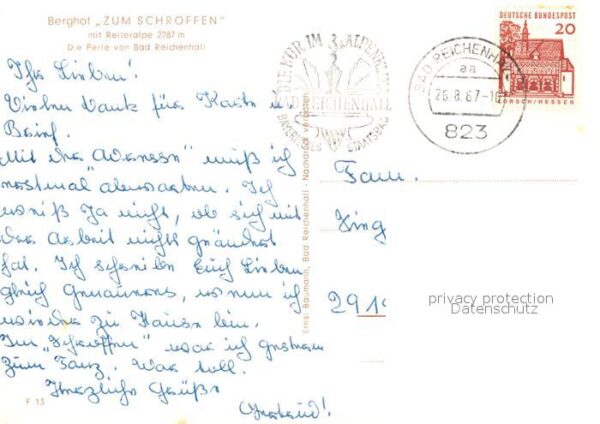 Berghof „ZUM SCHROFFEN"
mit Reiseralpe 2287 m
Die Perle von Bad Reichenhall
Ihr Lieben!
Vielen Dank für Karte u
Brief.
Mit der Adresse muß ich
erstmal abwarten. Ich
weiß ja nicht, ob sich mit
der Arbeit nichts geändert
hat. Ich schreibe Euch Lieben
gleich Genaueres, wenn ich
wieder zu Hause bin.
Im „Schroffen" war ich gestern
zum Tanz. War toll.
Herzliche Grüße
F 13
Ernst Baumann, Bad Reichenhall - Nachdruck verboten
DIE KUR IM ALPENKLIMA
BAD REICHENHALL
BAYERISCHES STAATSBAD
BAD REICHENHALL
aa
26.8.67-10
823
DEUTSCHE BUNDESPOST
20
LORSCH/HESSEN
Fam.
291
privacy protection
Datenschutz